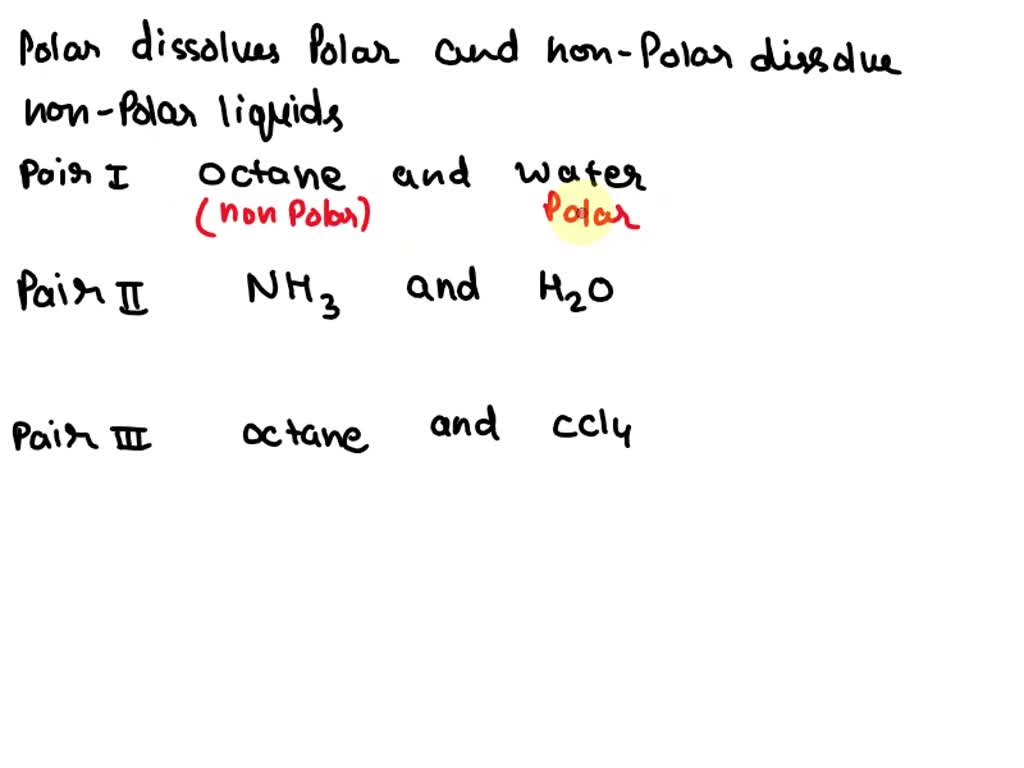 Polar dissolves Polar and non-Polar dissolve
non-Polar liquids
Pair I octane and water
(non Polar) Polar
Pair II NH3 and H2O
Pair III octane and CCl4